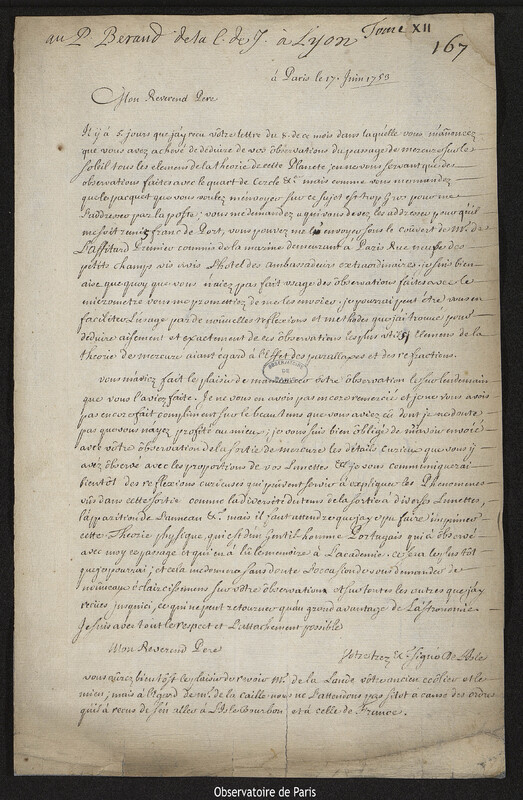 au P. Beraud de la C. de J. à Lyon Tome XII
167
à Paris le 17. Juin 1753
Mon Reverend Pere
Il y a 5. jours que j'ay reçu vôtre lettre du 8. de ce mois dans laquelle vous m'annoncez
que vous avez achevé de déduire de vos observations du passage de mercure sur le
soleil tous les elemens de la theorie de cette Planete en ne vous servant que des
observations faites avec le quart de Cercle &c. mais comme vous me mandez
que le pacquet que vous voulez m'envoyer sur ce sujet est trop gros pour me
l'addresser par la poste; vous me demandez a qui vous devez les addresser pour qu'il
me soit rendu franc de Port, vous pouvez me l'envoyer sous le couvert de Mr. de
Laffitard Premier commis de la marine demeurant à Paris Rue neuve des
petits champs vis a vis l'hotel des ambassadeurs extraordinaires. je suis bien
aise que quoy que vous n'aiez pas fait usage des observations faites avec le
micrometre vous me promettiez de me les envoier, je pourrai peut être vous en
faciliter l'usage par de nouvelles reflexions et methodes que j'ai trouvé pour
deduire aisement et exactement de ces observations les plus utiles elemens de la
theorie de mercure aiant egard à l'Effet des parallaxes et des refractions.
OBSERVATOIRE DE PARIS
vous m'aviez fait le plaisir de m'envoyer votre observation le surlendemain
que vous l'aviez faite. Je ne vous en avois pas encore remercié et je ne vous avois
pas encore fait compliment sur le beau tems que vous aviez eû dont je ne doute
pas que vous n'ayez profité au mieux; je vous suis bien obligé de m'avoir envoié
avec vôtre observation de la sortie de mercure les details curieux que vous y
avez observé avec les proportions de vos Lunettes &c. je vous communiquerai
bientôt des reflexions curieuses qui peuvent servir à expliquer les Phenomenes
vûs dans cette sortie comme la diversité du tems de la sortie à diverses Lunettes,
l'apparition de l'anneau &c. mais il faut attendre que j'aye pu faire imprimer
cette Theorie physique, qui est d'un gentil homme Portugais qui a observé
avec moy ce passage et qui en a lû le memoire à l'academie. ce sera le plus tôt
que je pourrai; et cela me donnera sans doute l'occasion de vous demander de
nouveaux éclaircissemens sur vôtre observation et sur toutes les autres que j'ay
reçues jusqu'ici, ce qui ne peut retourner qu'au grand avantage de l'astronomie.
Je suis avec tout le respect et l'attachement possible
Mon Reverend Pere
Votre tres &c. signé De l'Isle
vous aurez bientôt le plaisir de revoir Mr. de la Lande vôtre ancien ecolier et le
mien; mais à l'égard de mr. de la caille nous ne l'attendons pas sitot à cause des ordres
qu'il a recus de s'en aller à l'Isle Bourbon et à celle de France.
Observatoire de Paris